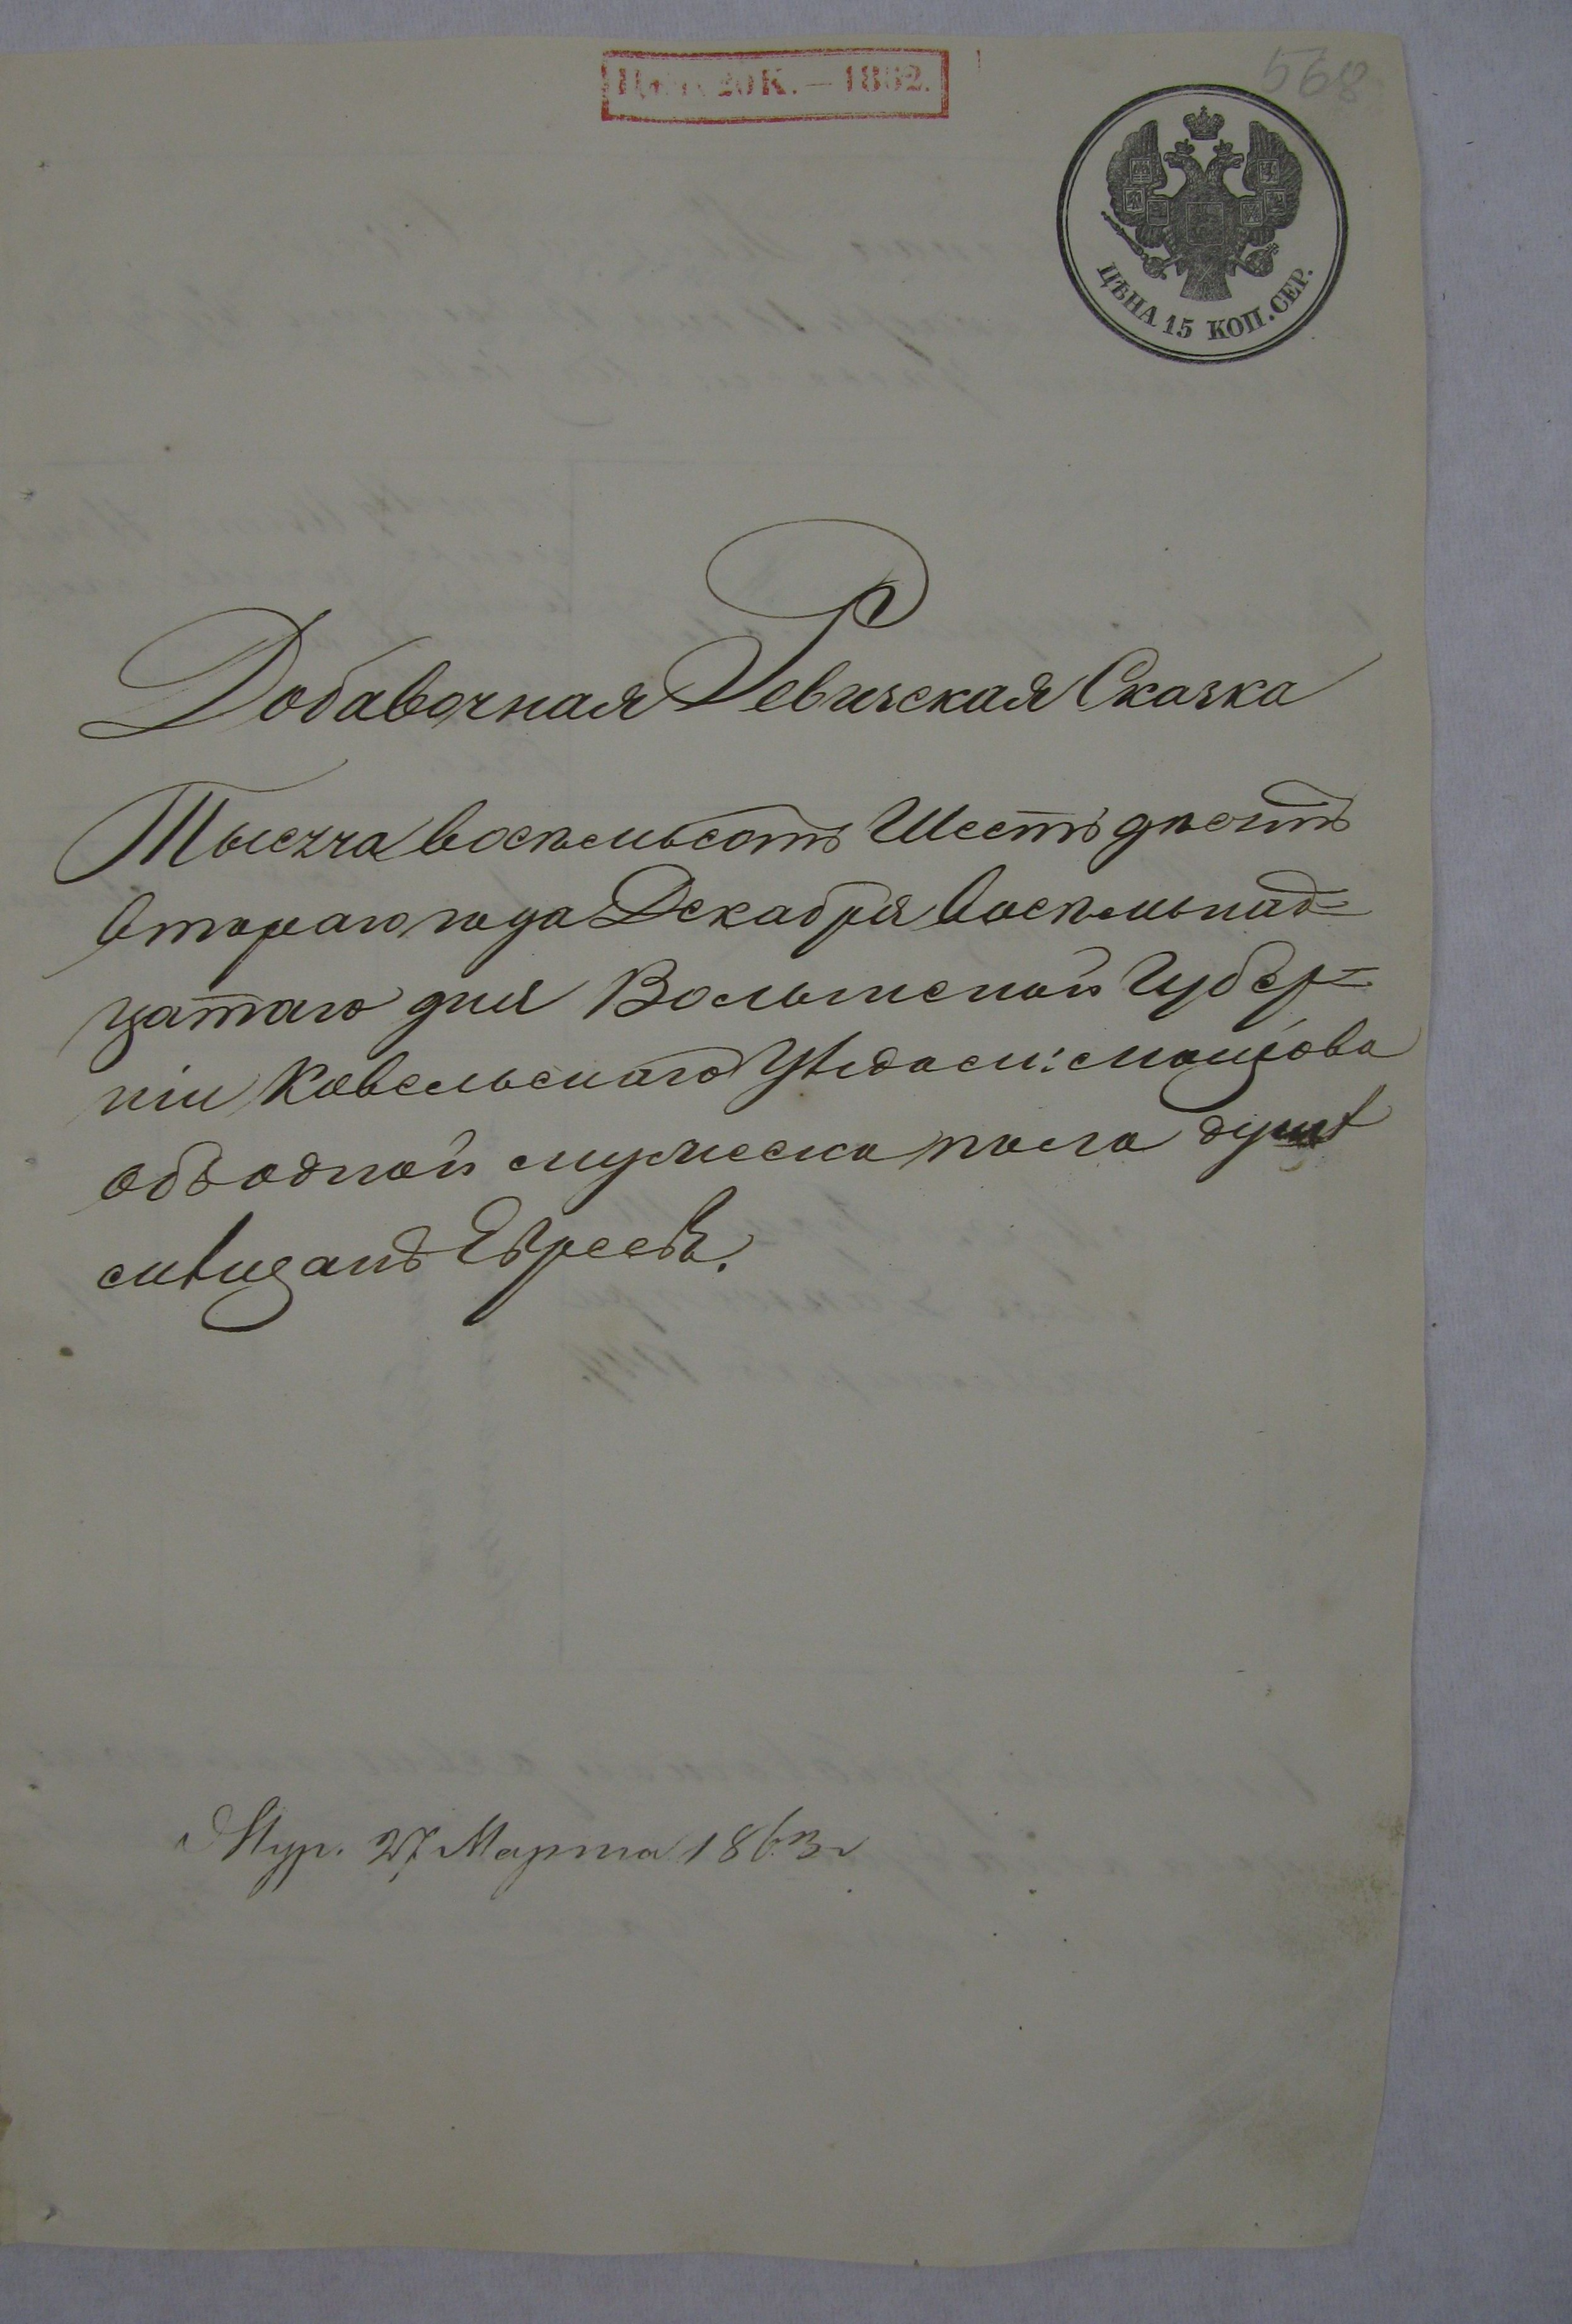 ЦѢНА 20 К. — 1862.
568
ЦѢНА 15 КОП. СЕР.
Добавочная Ревизская Сказка
Тысеча восемьсотъ Шестьдесятъ
втораго года Декабря восемьнад=
цатаго дня Волынской Губер=
ніи Ковельскаго Уѣзда м: Мацѣова
объ одной мужеска пола душѣ
мѣщанъ Евреевъ.
27 Марта 1863 г